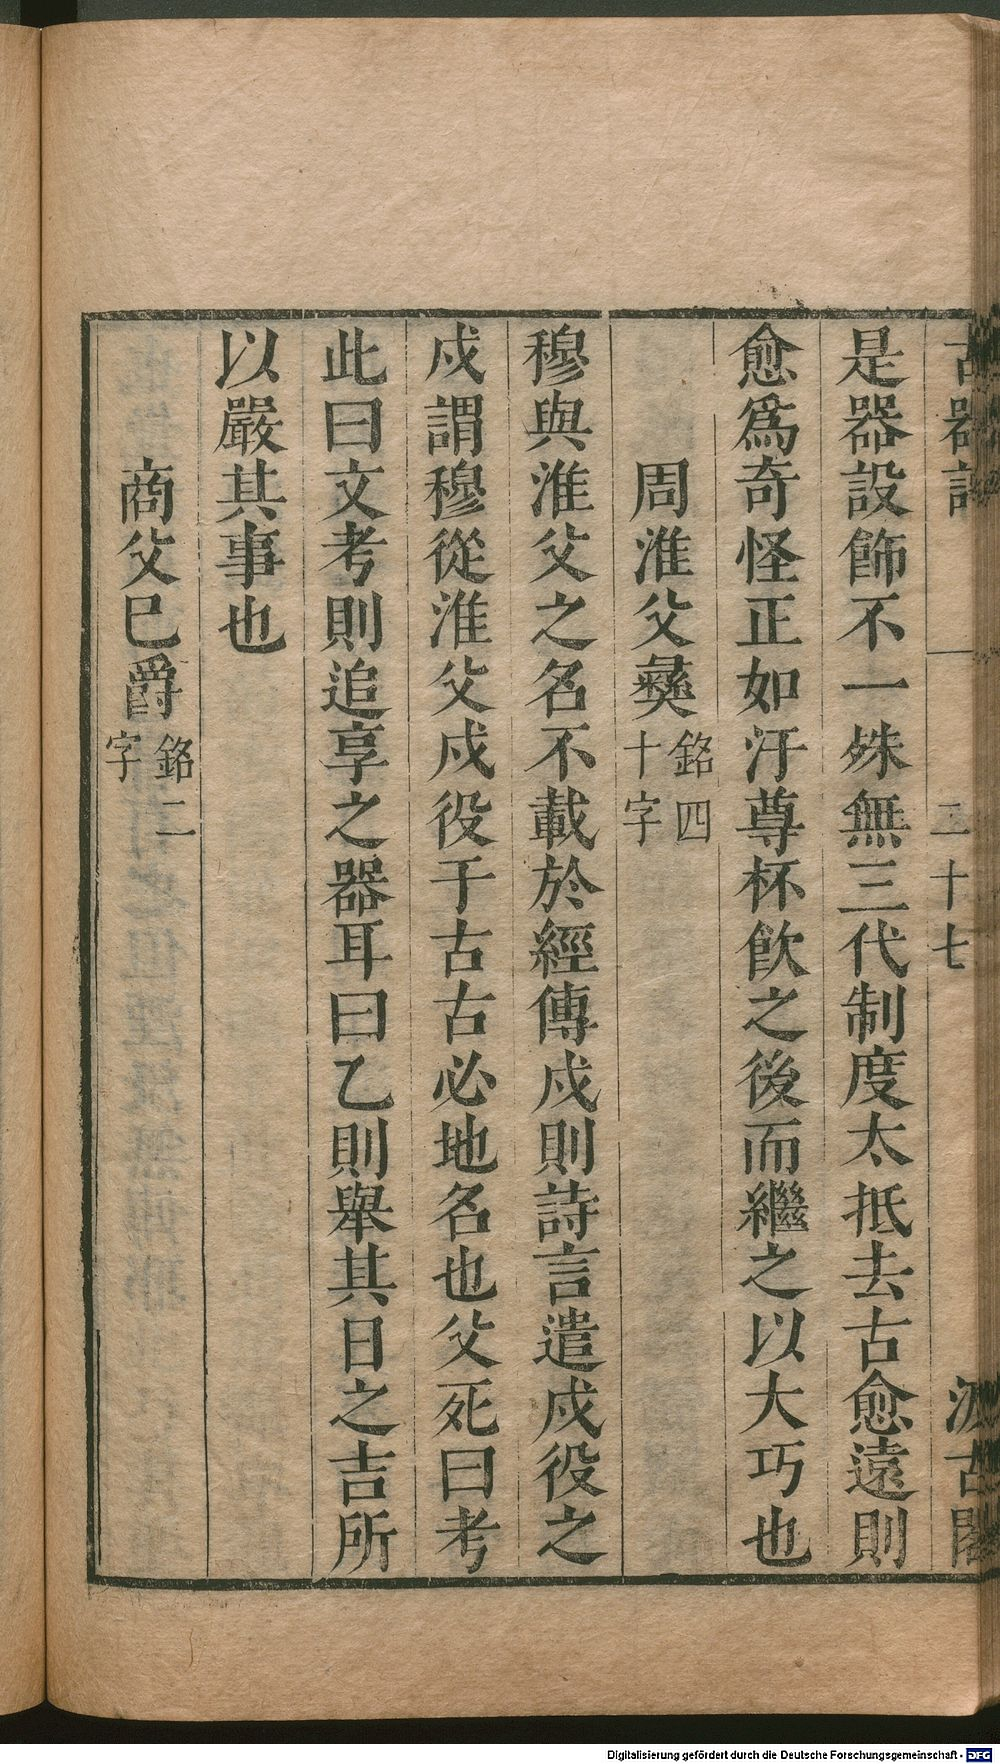 古器評 一 二十七 汲古閣
是器設飾不一殊無三代制度太抵去古愈遠則
愈爲奇怪正如汙尊杯飲之後而繼之以大巧也
周淮父彝銘四十字
穆與淮父之名不載於經傳戍則詩言遣戍役之
戍謂穆從淮父戍役于古古必地名也父死曰考
此曰文考則追享之器耳曰乙則舉其日之吉所
以嚴其事也
商父巳爵銘二字
Digitalisierung gefördert durch die Deutsche Forschungsgemeinschaft - DFG